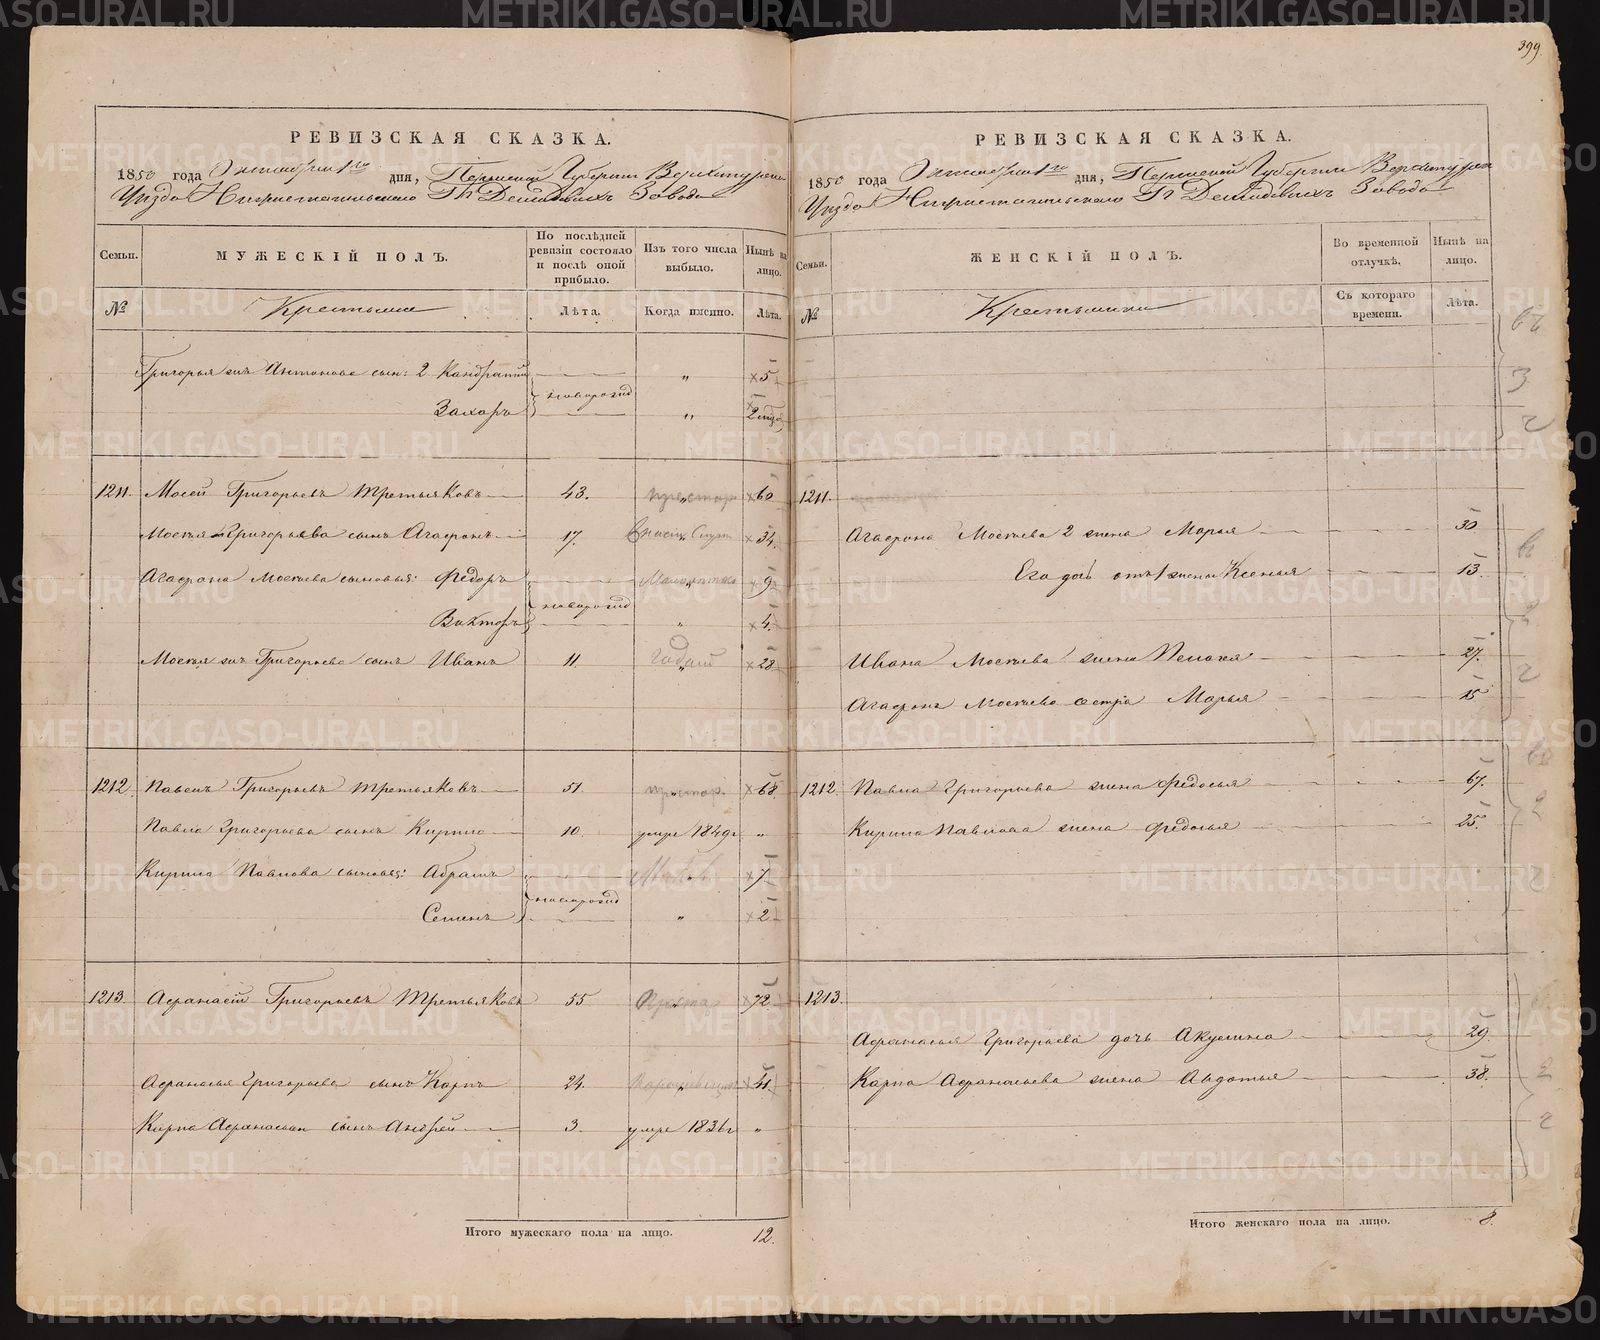 399.
РЕВИЗСКАЯ СКАЗКА.
1850 года Октября 1го дня, Пермской Губерніи Верхотурска
Уѣзда Нижнетагильскаго Гг. Демидовыхъ Завода
Семьи. МУЖЕСКІЙ ПОЛЪ. По послѣдней ревизіи состояло и послѣ оной прибыло. Изъ того числа выбыло. Нынѣ на лицо.
№ Крестьяне Лѣта. Когда именно. Лѣта.
Григорья Антонова сын: 2 Кандратій " 5
новорожд
Захаръ " 2
1211. Мосей Григорьевъ Третьяковъ 43. " 60
Мосѣя Григорьева сынъ Агафонъ 17. " 34.
Агафона Мосѣева сыновья: Федоръ " 9
новорожд
Викторъ " 4.
Мосѣя Григорьева сынъ Иванъ 11. " 28
1212. Павелъ Григорьевъ Третьяковъ 51 " 68.
Павла Григорьева сынъ Кирило 10. умре 1849г "
Кирила Павлова сыновья: Абрамъ 7
новорожд
Семенъ " 2
1213. Афанасій Григорьевъ Третьяковъ 55 72.
Афанасья Григорьева сынъ Карпъ 24. " 41
Карпа Афанасьева сынъ Андрей 3. умре 1836г "
Итого мужескаго пола на лицо. 12.
РЕВИЗСКАЯ СКАЗКА.
1850 года Октября 1го дня, Пермской Губерніи Верхотурска
Уѣзда Нижнетагильскаго Гг. Демидовыхъ Завода
Семьи. ЖЕНСКІЙ ПОЛЪ. Во временной отлучкѣ. Нынѣ на лицо.
№ Крестьянки Съ котораго времени. Лѣта.
1211.
Агафона Мосѣева 2 жена Марья 30
Его дочь отъ 1 жены Ксенья 13.
Ивана Мосѣева жена Пелагея 27.
Агафона Мосѣева сестра Марья 15
1212. Павла Григорьева жена Федосья 67.
Кирила Павлова жена Федосья 25.
1213.
Афанасья Григорьева дочь Акулина 29.
Карпа Афанасьева жена Авдотья 38.
Итого женскаго пола на лицо. 8.
METRIKI.GASO-URAL.RU